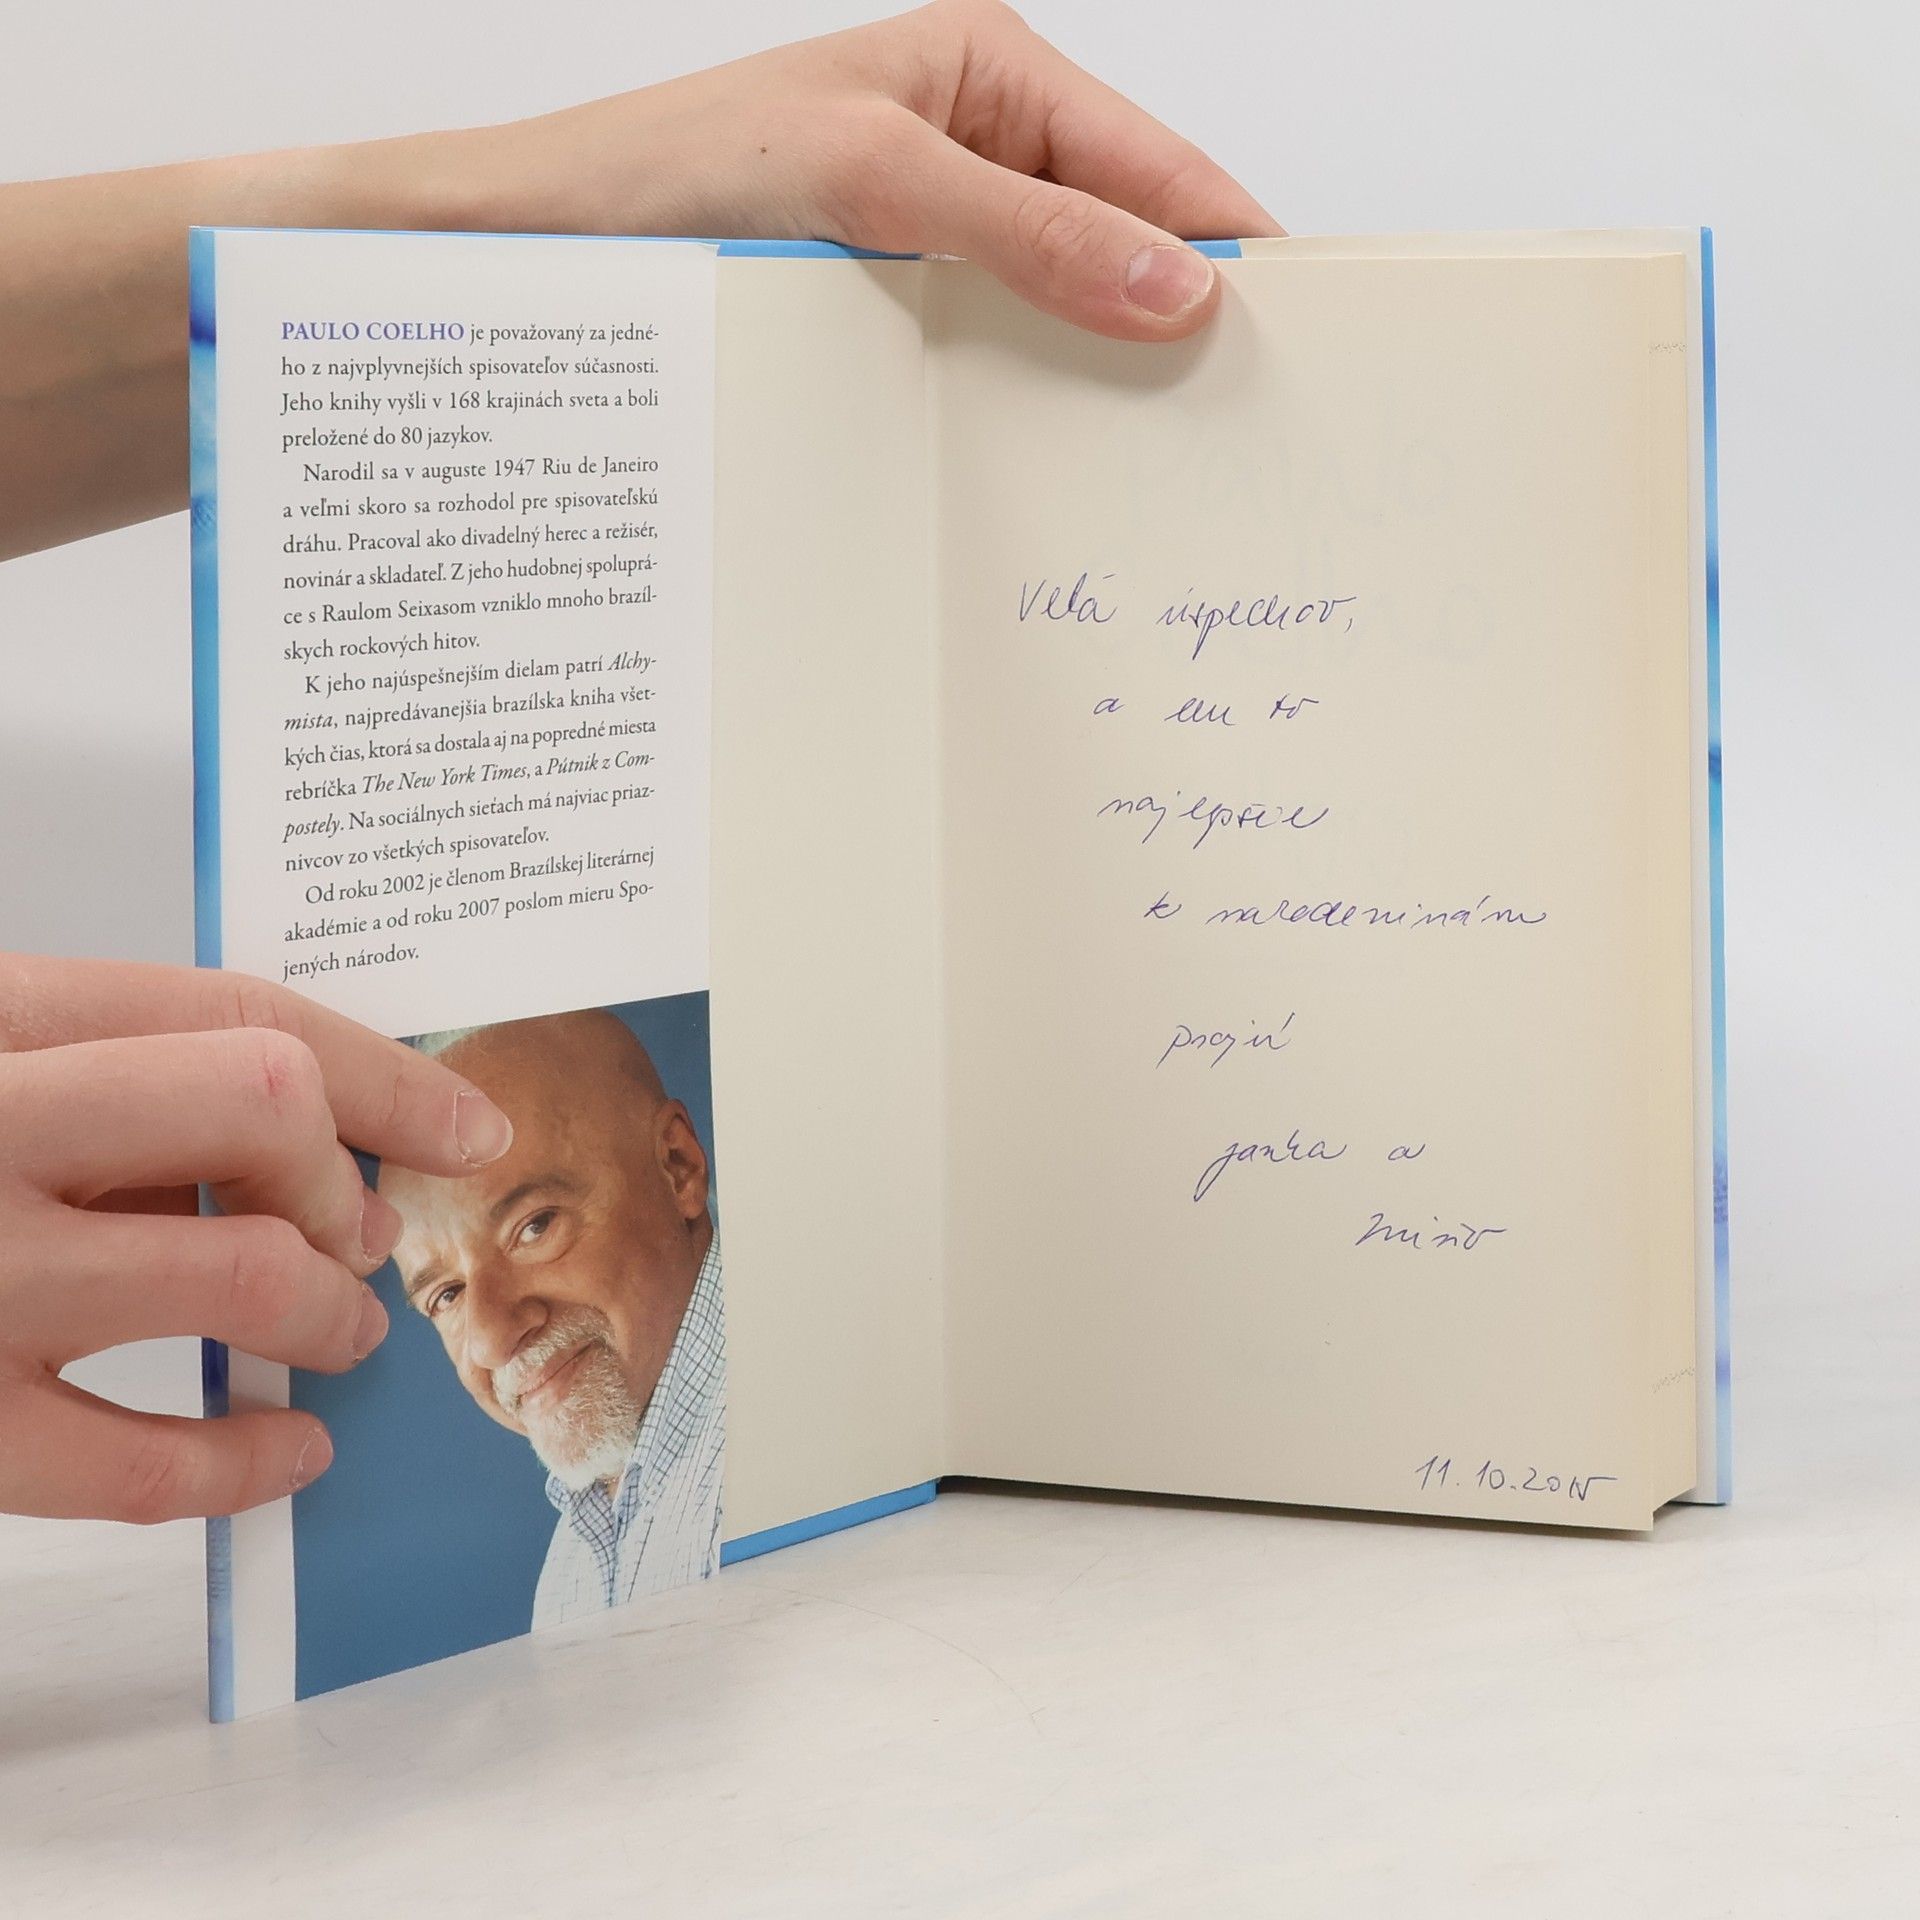 PAULO COELHO je považovaný za jedné-
ho z najvplyvnejších spisovateľov súčasnosti.
Jeho knihy vyšli v 168 krajinách sveta a boli
preložené do 80 jazykov.
Narodil sa v auguste 1947 Riu de Janeiro
a veľmi skoro sa rozhodol pre spisovateľskú
dráhu. Pracoval ako divadelný herec a režisér,
novinár a skladateľ. Z jeho hudobnej spoluprá-
ce s Raulom Seixasom vzniklo mnoho brazíl-
skych rockových hitov.
K jeho najúspešnejším dielam patrí Alchy-
mista, najpredávanejšia brazílska kniha všet-
kých čias, ktorá sa dostala aj na popredné miesta
rebríčka The New York Times, a Pútnik z Com-
postely. Na sociálnych sieťach má najviac priaz-
nivcov zo všetkých spisovateľov.
Od roku 2002 je členom Brazílskej literárnej
akadémie a od roku 2007 poslom mieru Spo-
jených národov.
Veľa úspechov,
a len to
najlepšie
k narodeninám
prajú
Janka a
Mišo
11.10.2015